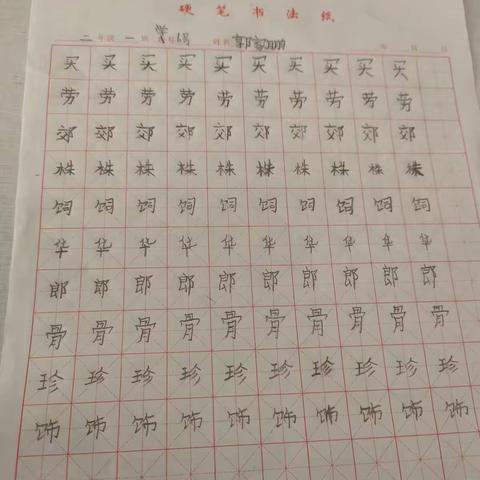 硬笔书法纸
二年级一班 学号 6号 姓名 年 月 日
买买买买买买买买买买
劳劳劳劳劳劳劳劳劳劳
郊郊郊郊郊郊郊郊郊郊
株株株株株株株株株株
饲饲饲饲饲饲饲饲饲饲
华华华华华华华华华华
郎郎郎郎郎郎郎郎郎郎
骨骨骨骨骨骨骨骨骨骨
珍珍珍珍珍珍珍珍珍珍
饰饰饰饰饰饰饰饰饰饰